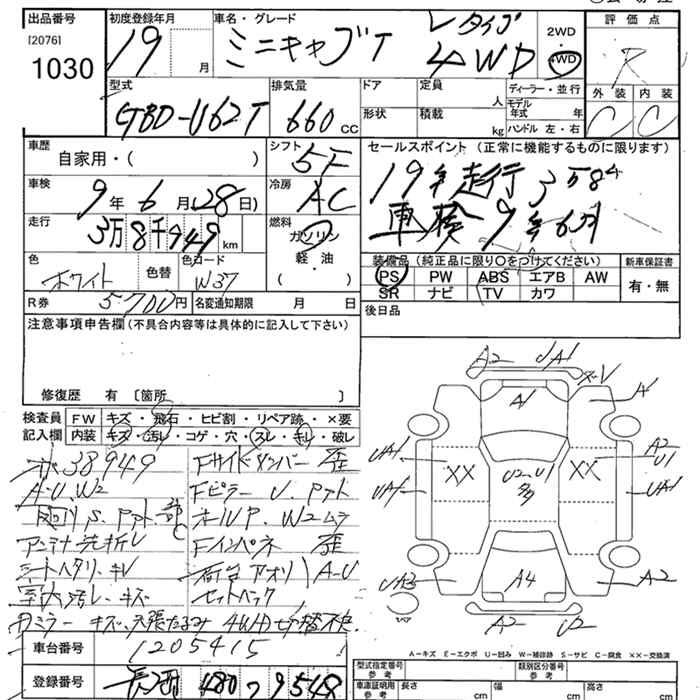 出品番号 初度登録年月 車名・グレード 評価点
[2076] 1030
19 月 ミニキャブT Vタイプ 4WD 2WD 4WD R
型式 排気量 ドア 定員 ディーラー・並行 外装 内装
GBD-U62T 660 CC 形状 積載 人 kg モデル年式 年 ハンドル 左・右 C C
車歴 シフト セールスポイント (正常に機能するものに限ります)
自家用・( ) 5F
19年走行
車検 9年6月28日) 冷房 AC
車検9年6月
走行 3万8千949km 燃料 ガソリン 軽・油 ( )
装備品 (純正品に限り○をつけてください) 新車保証書
PS PW ABS エアB AW 有・無
SR ナビ TV カワ
色 ホワイト 色替 色コード W37
R券 5700円 名変通知期限 月 日 後日品
注意事項申告欄 (不具合内容等は具体的に記入して下さい)
修復歴 有 〔箇所 〕
検査員 FW キズ・飛石・ヒビ割・リペア跡・×要
記入欄 内装 キズ・汚レ・コゲ・穴・スレ・キレ・破レ
38949 Fサイドメンバー 歪
A-U.W2 Fピラー U.
アンテナ先折レ Fインパネ 歪
シートヘタリ・キレ 荷台アオリ A-U
室内汚レ・キズ セットバック
ミラーキズ 4WD切替不良
A2 UA1
A1 A1
UA1 XX U2-U1 多 XX A2 U1
UA1 UA1
A4 A2
A2 U2
A-キズ E-エクボ U-凹み W-補修跡 S-サビ C-腐食 XX-交換済
車台番号 1205415
登録番号 480 9548
型式指定番号 参考 類別区分番号 参考
車庫証明用 参考 長さ cm 幅 cm 高さ cm